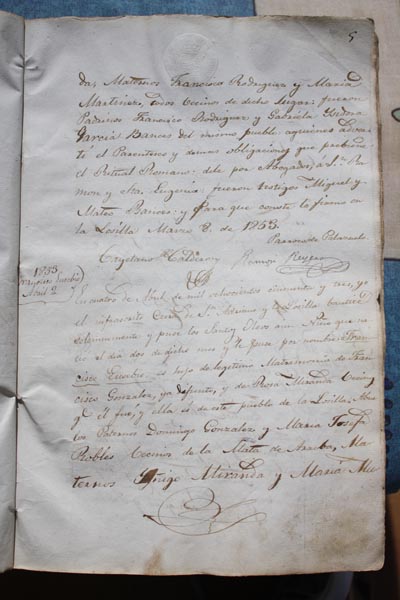 5
das, Maternos Francisco Rodriguez y Maria
Martinez, todos Vecinos de dicho lugar: fueron
Padrinos Francisco Rodriguez y Gabriela Isidora
Garcia Bances del mismo pueblo aquienes adver
ti el Parentesco y demas obligaciones que previene
el Ritual Romano: dile por Abogados, á Sn. Ra
mon y Sta. Eugenia: fueron testigos Miguel y
Mateo Bances: y para que conste lo firmo en
la Losilla Marzo 8 de 1853.
Cayetano Calderon Ramon Reyero
1853
Francisco Eusebio
Abril 2
En cuatro de Abril de mil ochocientos cincuenta y tres, yo
el infrascrito Cura de Sn. Adriano y la Losilla bauticé
solemnemente y puse los Santos Oleos aun Niño que na
ció el dia dos de dicho mes y le puse por nombre Fran
cisco Eusebio, es hijo de legitimo Matrimonio de Fran
cisco Gonzalez, ya difunto, y de Rosa Miranda Vecino
qe. él fué, y ella es de este pueblo de la Losilla, Abue
los Paternos Domingo Gonzalez y Maria Josefa
Robles Vecinos de la Mata de Ma
ternos Yñigo Miranda y Maria